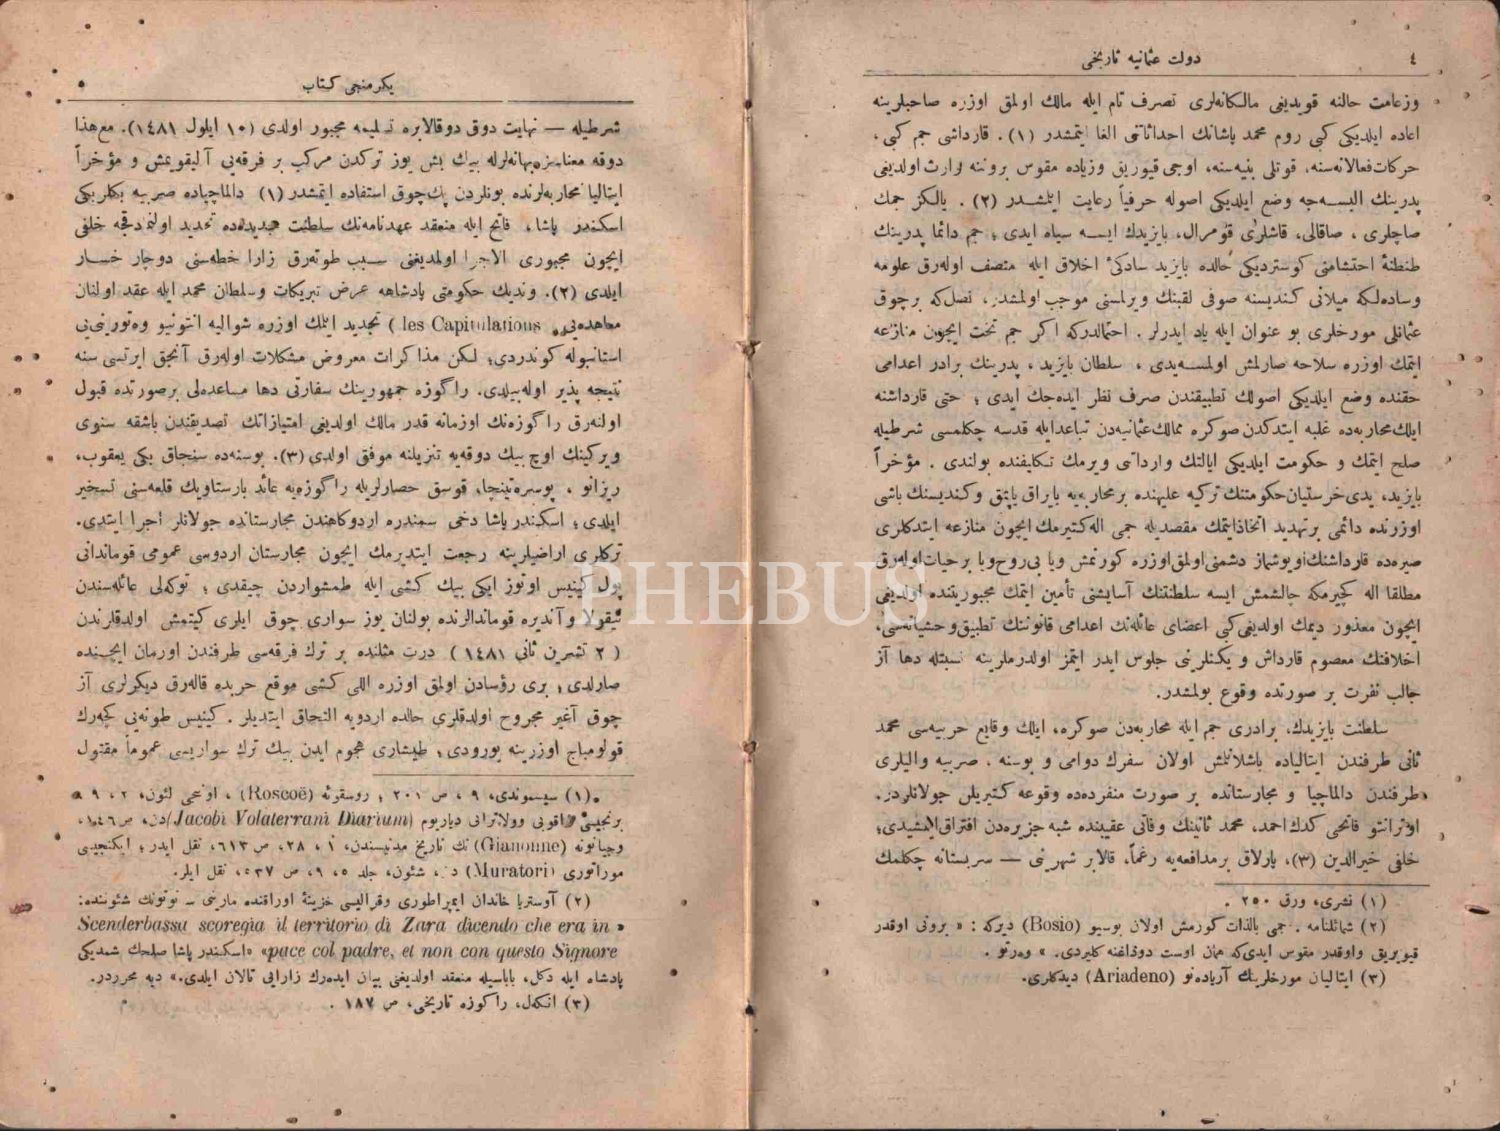 ٤
دولت عثمانیه تاریخی
وزعامت حالنه قویدیغی مالکانه‌لری تصرف تام ایله مالك اولمق اوزره صاحبلرینه
اعاده ایلدیکی کبی روم محمد پاشانك احداثاتنی الغا ایتمشدر (١). قارداشی جم کبی،
حرکات فعالانه‌سنه، قوتلی بنیه‌سنه، اوجی قیوریق وزیاده مقوس برونته وارث اولدیغی
پدرینك البسه‌جه وضع ایلدیکی اصوله حرفیاً رعایت ایتمشدر (٢). یالکز جمك
صاچلری، صاقالی، قاشلری قومرال، بایزیدك ایسه سیاه ایدی؛ جم دائما پدرینك
طنطنهٔ احتشامنی کوستردیکی حالده بایزید سادکیٔ اخلاق ایله متصف اوله‌رق علومه
وساده‌لکه میلانی کندیسنه صوفی لقبنك ویرلمسنی موجب اولمشدر، نصل‌که برچوق
عثمانلی مورخلری بو عنوان ایله یاد ایدرلر. احتمالدرکه اکر جم تخت ایچون منازعه
ایتمك اوزره سلاحه صارلمش اولمسه‌یدی، سلطان بایزید، پدرینك برادر اعدامی
حقنده وضع ایلدیکی اصولك تطبیقندن صرف نظر ایده‌جك ایدی؛ حتی قارداشنه
ایلك محاربه‌ده غلبه ایتدکدن صوکره ممالك عثمانیه‌دن تباعد ایله قدسه چکلمسی شرطیله
صلح ایتمك و حکومت ایلدیکی ایالتك وارداتی ویرمك تکلیفنده بولندی. مؤخراً
بایزید، یدی خرستیان حکومتنك ترکیه علیهنده بر محاربه‌یه بایراق یاپمق وکندیسنك باشی
اوزرنده دائمی بر تهدید اتخاذ ایتمك مقصدیله جمی اله کتیرمك ایچون منازعه ایتدکلری
صیره‌ده قارداشنك اویوشماز دشمنی اولمق اوزره کورنمش ویا بی‌روح ویا بر حیات اوله‌رق
مطلقا اله کچیرمکه چالشمش ایسه سلطنتنك آسایشنی تأمین ایتمك مجبوریتنده اولدیغی
ایچون معذور دیمك اولدیغی کبی اعضای عائله‌نك اعدامی قانوننك تطبیق وحشیانه‌سی،
اخلافنك معصوم قارداش و یکنلرینی جلوس ایدر ایتمز اولدرملرینه نسبتله دها آز
جالب نفرت بر صورتده وقوع بولمشدر.
سلطنت بایزیدك، برادری جم ایله محاربه‌دن صوکره، ایلك وقایع حربیه‌سی محمد
ثانی طرفندن ایتالیاده باشلانلمش اولان سفرك دوامی و بوسنه، صربیه والیلری
طرفندن دالماچیا و مجارستانده بر صورت منفرده‌ده وقوعه کتیریلن جولانلردر.
اوترانتو فاتحی کدك احمد، محمد ثانینك وفاتی عقیبنده شبه جزیره‌دن افتراق ایلمشیدی؛
خلفی خیرالدین (٣)، پارلاق بر مدافعه‌یه رغماً، قالابر شهرینی — سربستانه چکلمك
(١) نشری، ورق ٢٥٠.
(٢) شمائلنامه. جمی بالذات کورمش اولان بوسیو (Bosio) دیرکه: « برونی اوقدر
قیویریق واوقدر مقوس ایدی‌که همان اوست دوداغنه کلیردی. » وه‌رتو.
(٣) ایتالیان مورخلرینك آریاده‌نو (Ariadeno) دیدکلری.
یکرمنجی کتاب
٥
شرطیله — نهایت دوق دوقالابره تسلیمه مجبور اولدی (١٠ ایلول ١٤٨١). مع‌هذا
دوقه معناسز بهانه‌لرله بیك بش یوز ترکدن مرکب بر فرقه‌یی آلیقویمش و مؤخراً
ایتالیا محاربه‌لرنده بونلردن پك چوق استفاده ایتمشدر (١) دالماچیاده صربیه بکلربکی
اسکندر پاشا، فاتح ایله منعقد عهدنامه‌نك سلطنت جدیده‌ده تجدید اولنمدقجه خلفی
ایچون مجبوری الاجرا اولمدیغنی سبب طوته‌رق زارا خطه‌سنی دوچار خسار
ایلدی (٢). وندیك حکومتی پادشاهه عرض تبریکات وسلطان محمد ایله عقد اولنان
معاهده‌یی (les Capitulations) تجدید ایتمك اوزره شوالیه انتونیو وه‌تورینی‌یی
استانبوله کوندردی؛ لکن مذاکرات معروض مشکلات اوله‌رق آنجق ایرتسی سنه
نتیجه پذیر اوله‌بیلدی. راگوزه جمهورینك سفارتی دها مساعده‌لی بر صورتده قبول
اولنه‌رق راگوزه‌نك اوزمانه قدر مالك اولدیغی امتیازاتك تصدیقندن باشقه سنوی
ویرکینك اوچ بیك دوقه‌یه تنزیلنه موفق اولدی (٣). بوسنه‌ده سنجاق بکی یعقوب،
ریزانو، پوسره‌تینچا، قوسق حصارلریله راگوزه‌یه عائد بارستاویك قلعه‌سنی تسخیر
ایلدی؛ اسکندر پاشا دخی سمندره اردوکاهندن مجارستانده جولانلر اجرا ایتدی.
ترکلری اراضیلرینه رجعت ایتدیرمك ایچون مجارستان اردوسی عمومی قوماندانی
پول کینیس اوتوز ایکی بیك کشی ایله طمشواردن چیقدی؛ توکه‌لی عائله‌سندن
نیقولا وآندره قوماندالرنده بولنان یوز سواری چوق ایلری کیتمش اولدقلرندن
(٢ تشرین ثانی ١٤٨١) درت مثلنده بر ترك فرقه‌سی طرفندن اورمان ایچنده
صارلدی؛ بری رؤسادن اولمق اوزره اللی کشی موقع حربده قاله‌رق دیکرلری آز
چوق آغیر مجروح اولدقلری حالده اردویه التحاق ایتدیلر. کینیس طونه‌یی کچه‌رك
قولومباج اوزرینه یورودی؛ طیشاری هجوم ایدن بیك ترك سواریسی عموماً مقتول
(١) سیسموندی، ٩، ص ٢٠١؛ روسقوئه (Roscoë)، اونجی لئون، ٢، ٩
برنجیسی ژاقوبی وولاترانی دیاریوم (Jacobi Volaterrani Diarium) دن، ص ١٤٦،
وجیانونه (Gianonne) نك تاریخ مدنیسندن، ١، ٢٨، ص ٦١٣، نقل ایدر؛ ایکنجیدی
موراتوری (Muratori) دن، شئون، جلد ٥، ٩، ص ٥٣٧، نقل ایلر.
(٢) آوستریا خاندان ایمپراطوری وقرالیسی خزینهٔ اوراقنده مارینی – نوتونك شئوننده:
« Scenderbassa scoregia il territorio di Zara dicendo che era in
pace col padre, et non con questo Signore» «اسکندر پاشا صلحك شمدیکی
پادشاه ایله دکل، باباسیله منعقد اولدیغنی بیان ایده‌رك زارایی تالان ایلدی.» دیه محرردر.
(٣) انکه‌ل، راکوزه تاریخی، ص ١٨٧.
PHEBUS